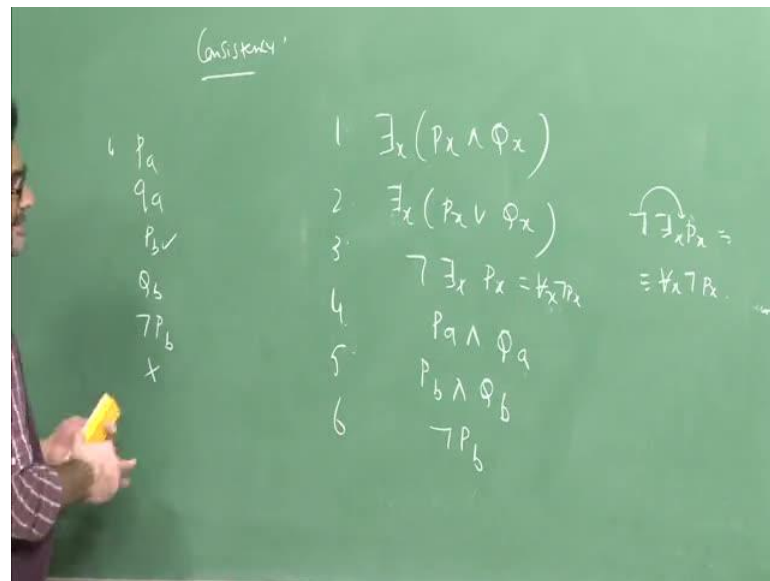 Consistency
Pa
qa
Pb ✓
Qb
¬Pb
×
1 ∃x (Px ∧ Qx)
2. ∃x (Px ∨ Qx)
3. ¬∃x Px = ∀x¬Px
4. Pa ∧ Qa
5. Pb ∧ Qb
6 ¬Pb
¬∃xPx =
≡ ∀x¬Px.